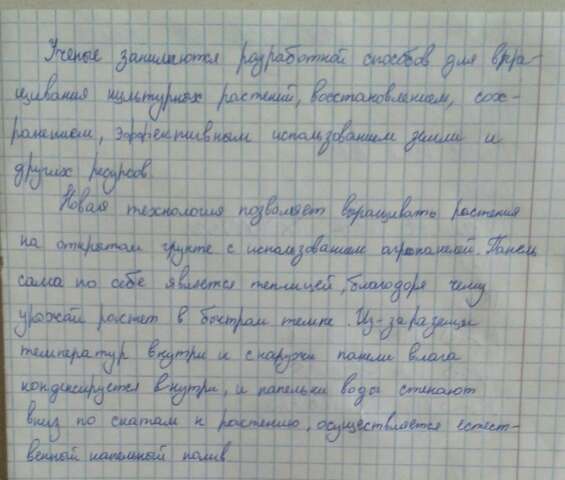 Ученые занимаются разработкой способов для выра-
щивания культурных растений, восстановлением, сох-
ранением, эффективным использованием земли и
других ресурсов.
Новая технология позволяет выращивать растения
на открытом грунте с использованием агропанелей. Панель
сама по себе является теплицей, благодоря чему
урожай растет в быстром темпе. Из-за разницы
температур внутри и снаружи панели влага
конденсируется внутри, и капельки воды стекают
вниз по скатам к растению, осуществляется естест-
венной капельной полив.